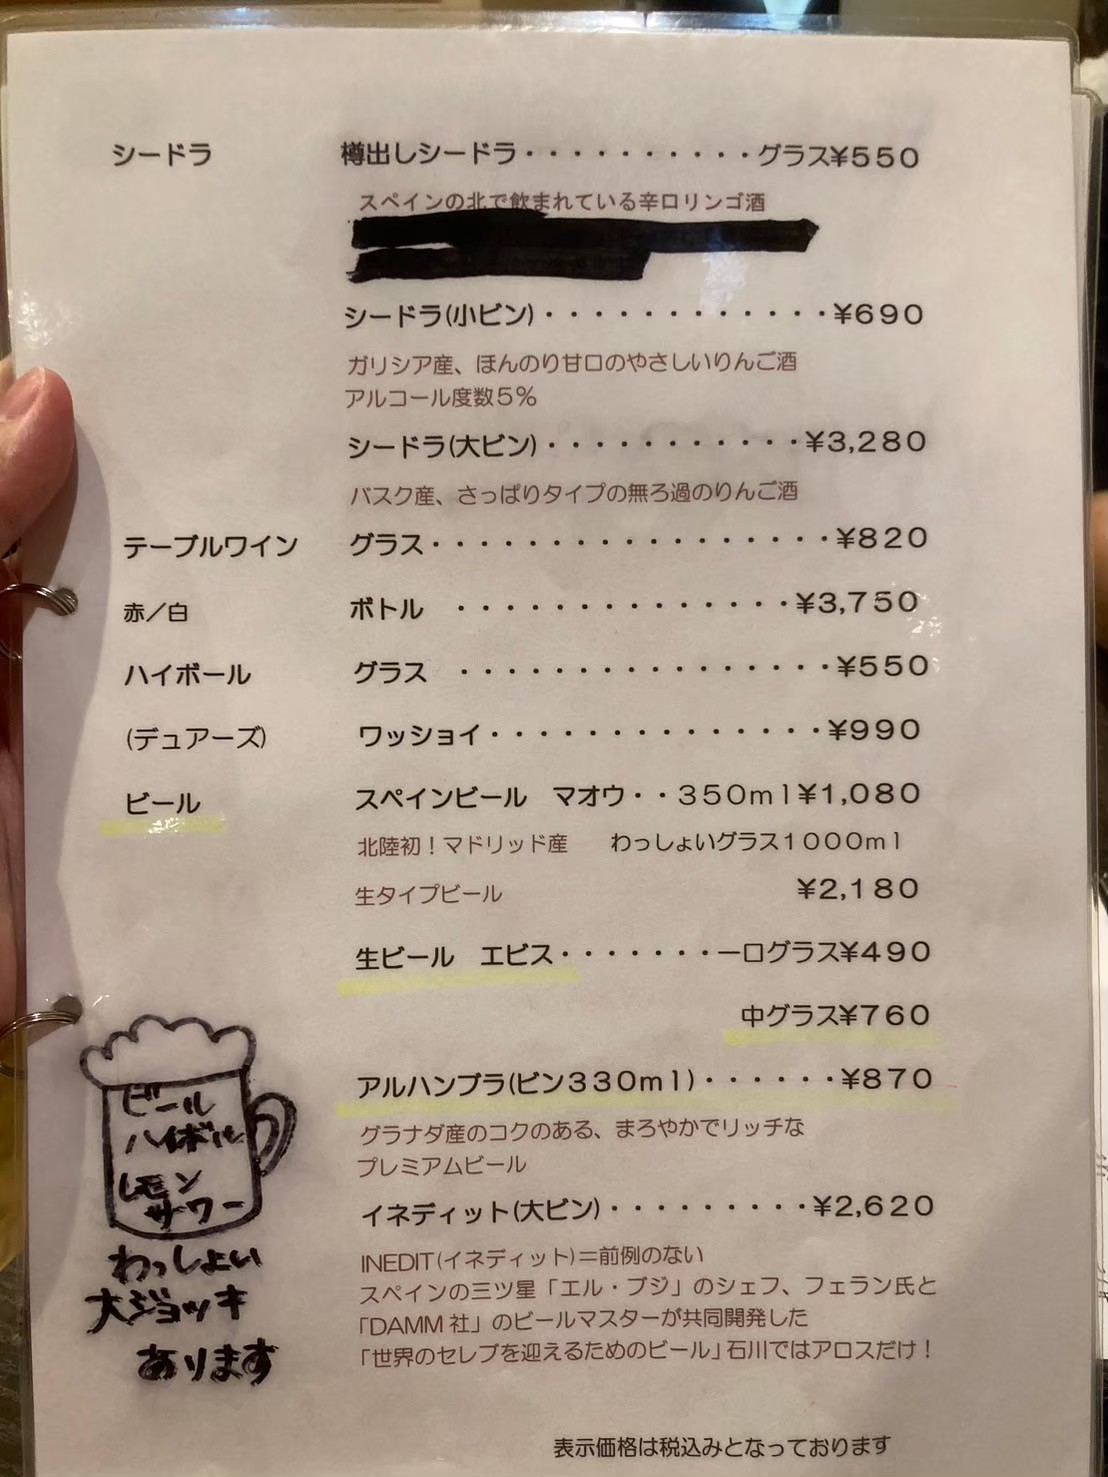 シードラ 樽出しシードラ・・・・・・・・・・グラス¥550
スペインの北で飲まれている辛口リンゴ酒
シードラ(小ビン)・・・・・・・・・・・・¥690
ガリシア産、ほんのり甘口のやさしいりんご酒
アルコール度数5%
シードラ(大ビン)・・・・・・・・・・・¥3,280
バスク産、さっぱりタイプの無ろ過のりんご酒
テーブルワイン グラス・・・・・・・・・・・・・・・・・¥820
赤／白 ボトル ・・・・・・・・・・・・・・¥3,750
ハイボール グラス ・・・・・・・・・・・・・・・・¥550
(デュアーズ) ワッショイ・・・・・・・・・・・・・・¥990
ビール スペインビール マオウ・・350ml¥1,080
北陸初！マドリッド産 わっしょいグラス1000ml
生タイプビール ¥2,180
生ビール エビス・・・・・・・一口グラス¥490
中グラス¥760
アルハンブラ(ビン330ml)・・・・・・¥870
グラナダ産のコクのある、まろやかでリッチな
プレミアムビール
イネディット(大ビン)・・・・・・・・・¥2,620
INEDIT(イネディット)＝前例のない
スペインの三ツ星「エル・ブジ」のシェフ、フェラン氏と
「DAMM社」のビールマスターが共同開発した
「世界のセレブを迎えるためのビール」石川ではアロスだけ！
ビール
ハイボール
レモン
サワー
わっしょい
大ジョッキ
あります
表示価格は税込みとなっております